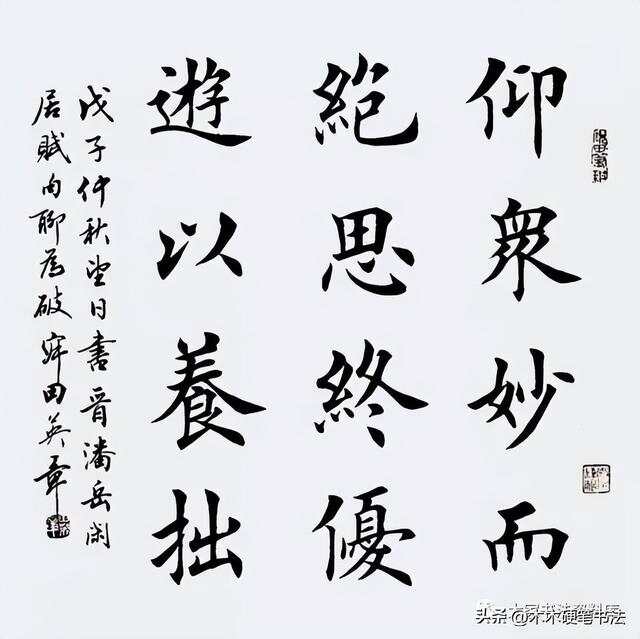 仰衆妙而
絶思終優
遊以養拙
戊子仲秋望日書晉潘岳閑
居賦句聊為破寐田英章
头条 @坏坏硬笔书法